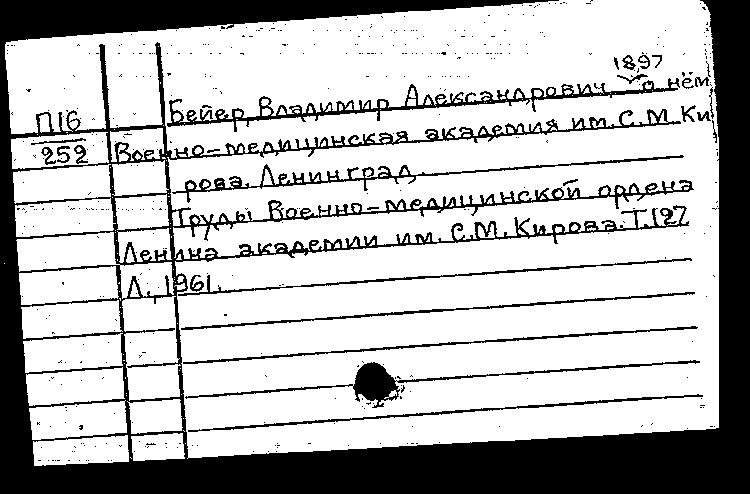 1897
Бейер, Владимир Александрович, о нём
П16
252
Военно-медицинская академия им. С.М. Ки
рова. Ленинград.
Труды Военно-медицинской ордена
Ленина академии им. С.М. Кирова. Т. 127
Л., 1961.